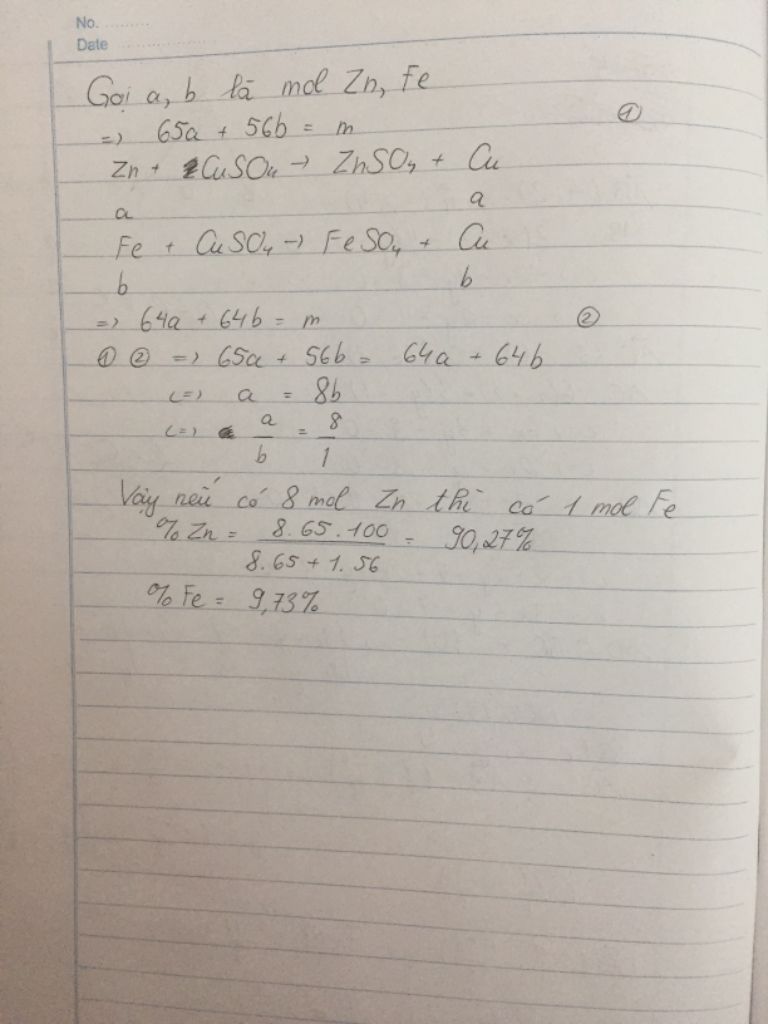 No. ..........
Date ....................
Gọi a, b là mol Zn, Fe
=> 65a + 56b = m ①
Zn + CuSO₄ → ZnSO₄ + Cu
a a
Fe + CuSO₄ → FeSO₄ + Cu
b b
=> 64a + 64b = m ②
① ② => 65a + 56b = 64a + 64b
<=> a = 8b
<=> a/b = 8/1
Vậy nếu có 8 mol Zn thì có 1 mol Fe
% Zn = 8.65.100 / 8.65 + 1.56 = 90,27%
% Fe = 9,73%